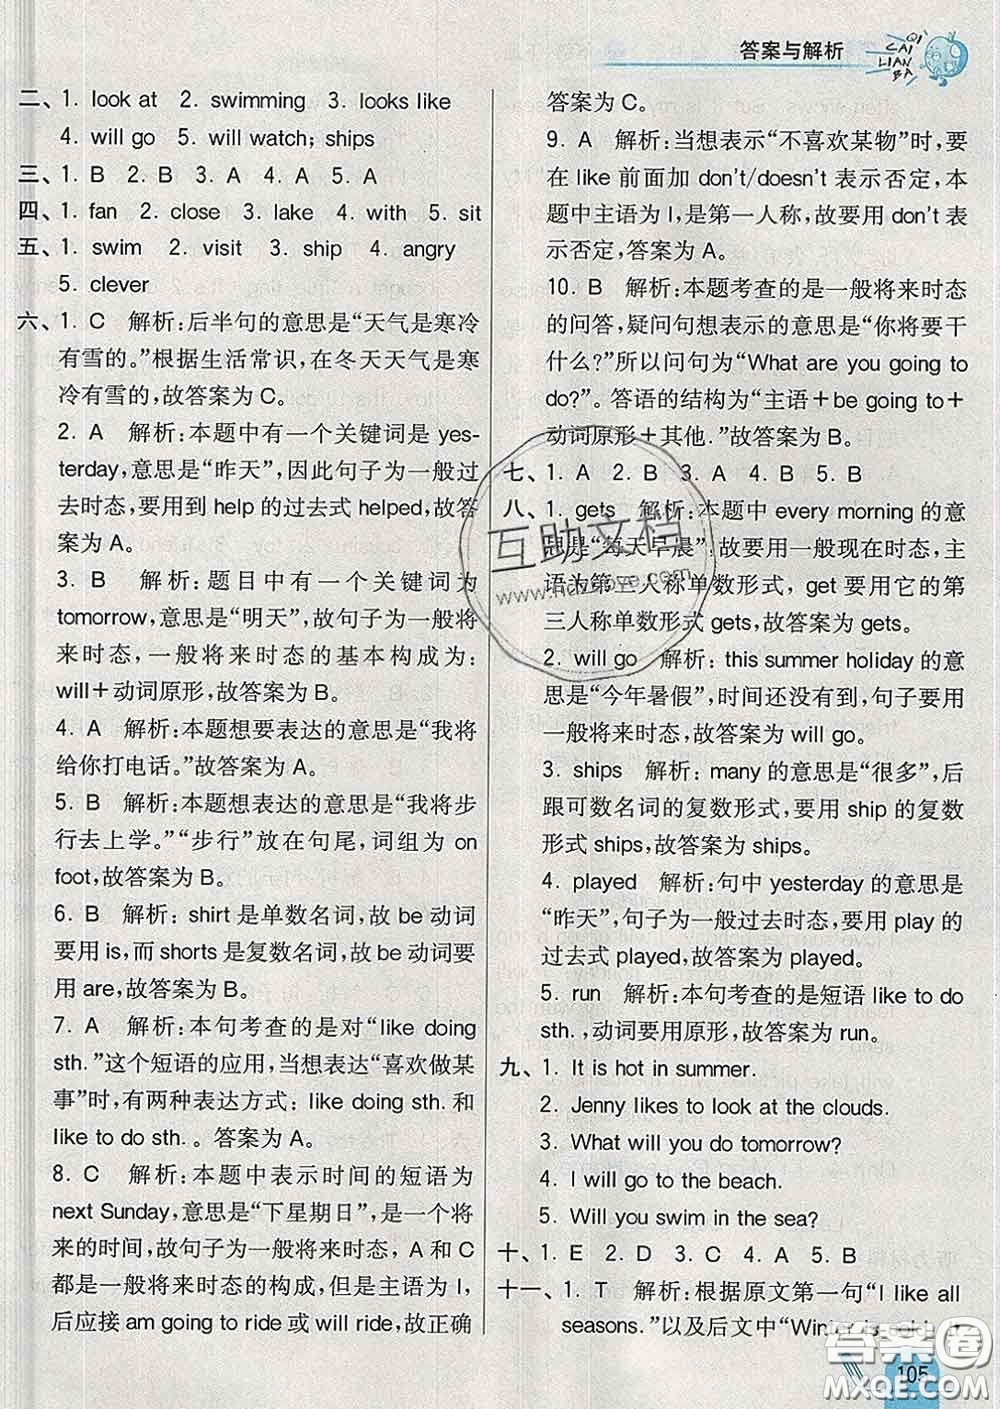 答案与解析
QI
CAI
LIAN
BA
二、1. look at 2. swimming 3. looks like
4. will go 5. will watch; ships
三、1. B 2. B 3. A 4. A 5. A
四、1. fan 2. close 3. lake 4. with 5. sit
五、1. swim 2. visit 3. ship 4. angry
5. clever
六、1. C 解析:后半句的意思是“天气是寒冷
有雪的。”根据生活常识,在冬天天气是寒
冷有雪的,故答案为C。
2. A 解析:本题中有一个关键词是 yes-
terday,意思是“昨天”,因此句子为一般过
去时态,要用到 help 的过去式 helped,故答
案为 A。
3. B 解析:题目中有一个关键词为
tomorrow,意思是“明天”,故句子为一般将
来时态,一般将来时态的基本构成为:
will+动词原形,故答案为 B。
4. A 解析:本题想要表达的意思是“我将
给你打电话。”故答案为 A。
5. B 解析:本题想表达的意思是“我将步
行去上学。”“步行”放在句尾,词组为 on
foot,故答案为 B。
6. B 解析: shirt 是单数名词,故 be 动词
要用 is,而 shorts 是复数名词,故 be 动词要
用 are,故答案为 B。
7. A 解析:本句考查的是对“like doing
sth. ”这个短语的应用,当想表达“喜欢做某
事”时,有两种表达方式: like doing sth. 和
like to do sth. 。答案为 A。
8. C 解析:本题中表示时间的短语为
next Sunday,意思是“下星期日”,是一个将
来的时间,故句子为一般将来时态,A 和 C
都是一般将来时态的构成,但是主语为 I,
后应接 am going to ride 或 will ride,故正确
答案为 C。
9. A 解析:当想表示“不喜欢某物”时,要
在 like 前面加 don't/doesn't 表示否定,本
题中主语为 I,是第一人称,故要用 don't 表
示否定,答案为 A。
10. B 解析:本题考查的是一般将来时态
的问答,疑问句想表示的意思是“你将要干
什么?”所以问句为“What are you going to
do?”。答语的结构为“主语+be going to+
动词原形+其他. ”故答案为 B。
七、1. A 2. B 3. A 4. B 5. B
八、1. gets 解析:本题中 every morning 的意
思是“每天早晨”,故要用一般现在时态,主
语为第三人称单数形式,get 要用它的第
三人称单数形式 gets,故答案为 gets。
2. will go 解析: this summer holiday 的意
思是“今年暑假”,时间还没有到,句子要用
一般将来时态,故答案为 will go。
3. ships 解析: many 的意思是“很多”,后
跟可数名词的复数形式,要用 ship 的复数
形式 ships,故答案为 ships。
4. played 解析:句中 yesterday 的意思是
“昨天”,句子为一般过去时态,要用 play 的
过去式 played,故答案为 played。
5. run 解析:本句考查的是短语 like to do
sth. ,动词要用原形,故答案为 run。
九、1. It is hot in summer.
2. Jenny likes to look at the clouds.
3. What will you do tomorrow?
4. I will go to the beach.
5. Will you swim in the sea?
十、1. E 2. D 3. C 4. A 5. B
十一、1. T 解析:根据原文第一句“I like all
seasons. ”以及后文中“Winter is
105
互助文档
答案圈
MXQE.COM